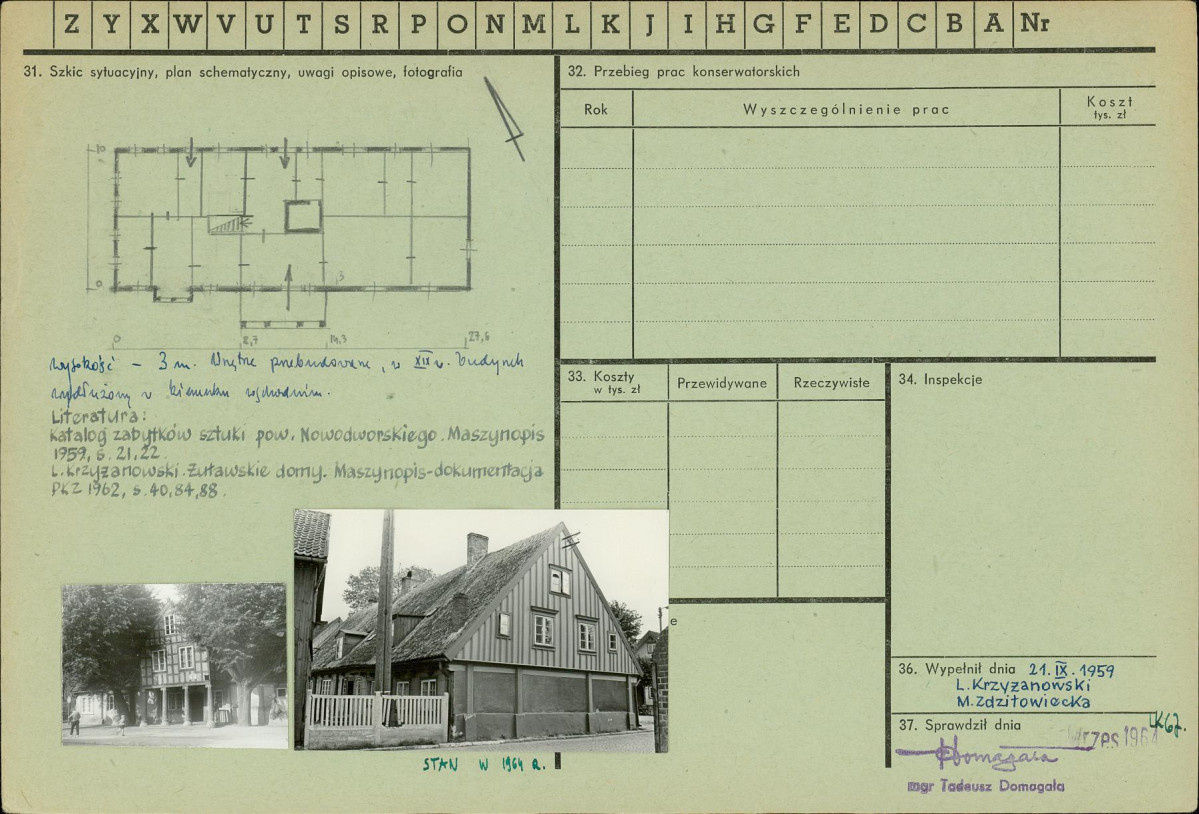 Z Y X W V U T S R P O N M L K J I H G F E D C B A Nr
31. Szkic sytuacyjny, plan schematyczny, uwagi opisowe, fotografia
10
0
3
0 8,7 14,3 27,6
wysokość – 3 m. Wnętrze przebudowane, w XIX w. budynek
wydłużony w kierunku wschodnim.
Literatura:
Katalog zabytków sztuki pow. Nowodworskiego. Maszynopis
1959, s. 21, 22.
L. Krzyżanowski. Żuławskie domy. Maszynopis-dokumentacja
PKZ 1962, s. 40, 84, 88.
STAN W 1964 R.
32. Przebieg prac konserwatorskich
Rok Wyszczególnienie prac Koszt
tys. zł
33. Koszty
w tys. zł
Przewidywane Rzeczywiste
34. Inspekcje
e
36. Wypełnił dnia 21. IX. 1959
L. Krzyżanowski
M. Zdziłowiecka
37. Sprawdził dnia
Wrzes 1964
Domagała
mgr Tadeusz Domagała